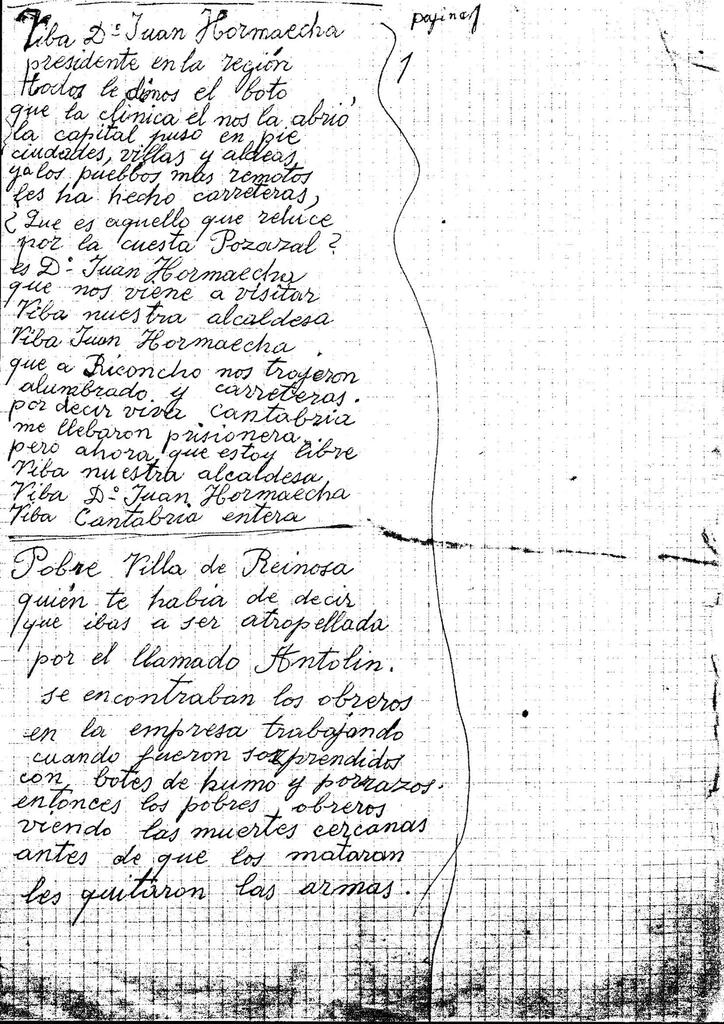 pajina 1
1
Viba Dº Juan Hormaecha
presidente en la región
todos le dimos el boto
que la clinica el nos la abrió,
la capital puso en pie
ciudades, villas y aldeas,
ya los pueblos mas remotos
les ha hecho carreteras,
¿Que es aquello que reluce
por la cuesta Pozazal?
es Dº Juan Hormaecha
que nos viene a visitar
Viba nuestra alcaldesa
Viba Juan Hormaecha
que a Riconcho nos trajeron
alumbrado y carreteras.
por decir viva cantabria
me llebaron prisionera
pero ahora que estoy libre
Viba nuestra alcaldesa
Viba Dº Juan Hormaecha
Viba Cantabria entera
Pobre Villa de Reinosa
quién te habia de decir
que ibas a ser atropellada
por el llamado Antolin.
se encontraban los obreros
en la empresa trabajando
cuando fueron sorprendidos
con botes de humo y porrazos.
entonces los pobres obreros
viendo las muertes cercanas
antes de que los mataran
les quitaron las armas.